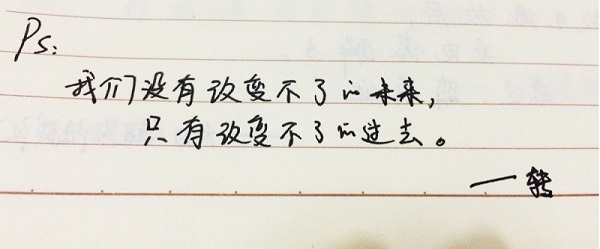 Ps:
我们没有改变不了的未来,
只有改变不了的过去。
——转